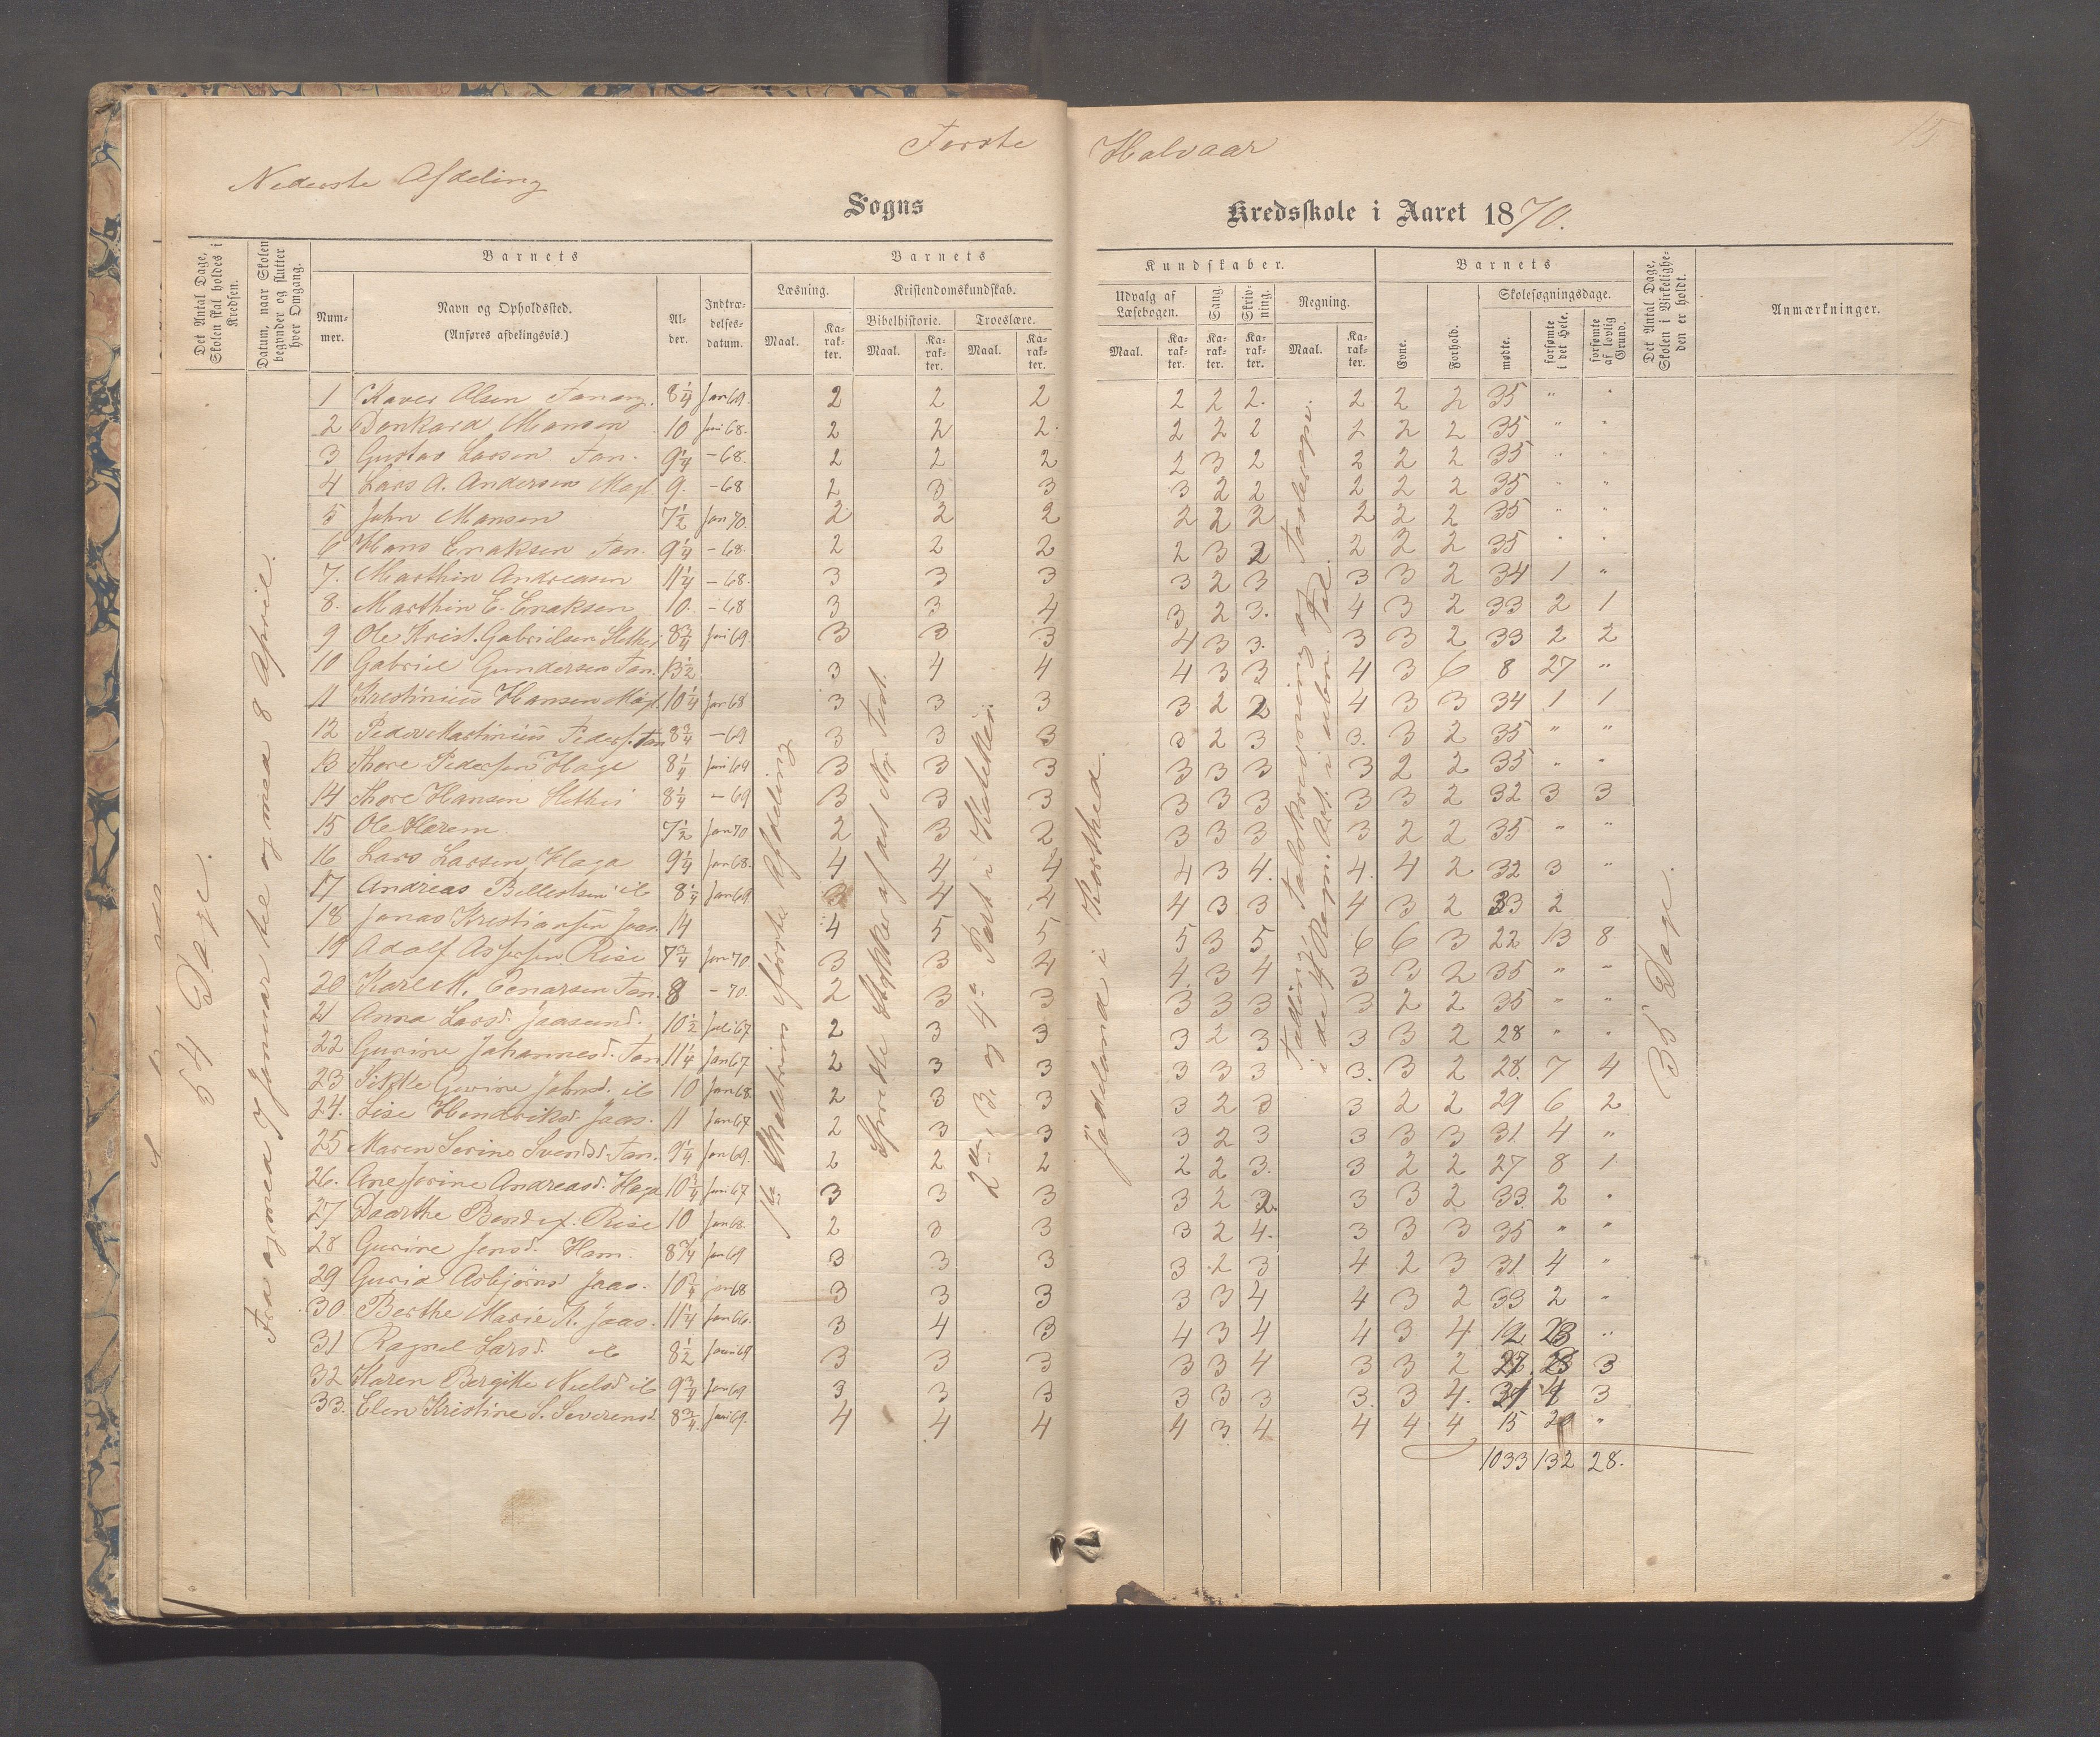 Første Halvaar
15
Nederste Afdeling
Sogns Kredsskole i Aaret 1870.
Det Antal Dage, Skolen skal holdes i Kredsen.
Datum, naar Skolen begynder og slutter hver Omgang.
Barnets
Barnets
Kundskaber.
Barnets
Det Antal Dage, Skolen i Virkeligheden er holdt.
Anmærkninger.
Nummer.
Navn og Opholdssted.
(Anføres afdelingsvis.)
Alder.
Indtrædelsesdatum.
Læsning.
Kristendomskundskab.
Bibelhistorie.
Troeslære.
Udvalg af Læsebogen.
Sang.
Skrivning.
Regning.
Evne.
Forhold.
Skolesøgningsdage.
mødte.
forsømte i det Hele.
forsømte af lovlig Grund.
Maal. Karakter. Maal. Karakter. Maal. Karakter. Maal. Karakter. Karakter. Karakter. Maal. Karakter.
54 Dage.
Fra og med 7 Januar til og med 8 April.
Afdeling
Spredte Stykker af det Ny. Test.
2den, 3die og 4de Part i Katekism.
Jödeland i Korthed.
Talskrivning og Tavleregn.
i de 4 Regn. Art. i ubn. Tal.
35 Dage.
1 Olsen Tanang. 8¼ Jan 69. 2 2 2 2 2 2. 2 2 2 35 " "
2 Dankard Monsen 10 Juni 68. 2 2 2. 2 2 2 2 2 2 35 " "
3 Gustav Larsen Tan. 9¼ - 68. 2 2 2 2 3 2 2 2 2 35 " "
4 Lars A. Andersen 9. - 68 2 3 3 3 2 2 2 2 2 35 " "
5 John Monsen 7½ Jan 70. 2 2 2 2 2 2 2 2 2 35 " "
6 Hans Enaksen Tan. 9¼ - 68. 2 2 2 2 3 2 2 2 2 35 " "
7. Marthin Andreasen 11¼ - 68. 3 3 3 3 2 3 3 3 2 34 1 "
8. Marthin E. Enaksen 10. - 68 3 3 4 3 2 3. 4 3 2 33 2 1
9 Ole Krist. Gabrielsen 8¾ Juni 69. 3 3 3 4 3 3. 3 3 2 33 2 2
10 Gabriel Gundersen Tan. 13½ 3 4 4 4 3 3 4 3 6 8 27 "
11 Krestinius Hansen 10¼ Jan 68 3 3 3 3 2 2 4 3 3 34 1 1
12 Peder Martinius Peders. Tan 8¾ - 69 3 3 3 3 2 3 3. 3 2 35 " "
13 Thore Pedersen Hage 8¼ Juni 69 3 3 3 3 3 3 3 2 2 35 " "
14 Thore Hansen 8¼ - 69 3 3 3 3 3 3 3 3 2 32 3 3
15 Ole 7½ Jan 70 2 3 2 3 3 3 3 2 2 35 " "
16 Lars Larsen Haga 9¼ Jan 68. 4 4 4 4 3 4. 4. 4 2 32 3 "
17 Andreas 8¼ Jan 69 3 4 4 4 3 3 4 3 2 33 2
18 Jonas Kristiansen Jaas. 14 4 5 5 5 3 5 6 6 3 22 13 8
19 Adolf Assersen Rise 7¾ Jan 70 3 3 4 4. 3 4 3 3 2 35 " "
20 Karl M. Tan. 8 - 70. 2 3 3 3 3 3 3 2 2 35 " "
21 Anna Larsd. Jaasund. 10½ Juli 67 2 3 3 3 2 3 3 3 2 28 " "
22 Gurine Johannesd. Tan 11¼ Jan 67 2 3 3 3 3 3 3. 3 2 28. 7 4
23 Gurine Johnsd. 10 Jan 68. 2 3 3 3 2 3 3 2 2 29 6 2
24. Lise Hendriksd. Jaas. 11 Jan 67 2 3 3 3 2 3 3 3 3 31. 4 "
25 Maren Serine Svendsd. Tan. 9¼ Jan 69. 2 2 2 2 2 3. 3 2 2 27 8 1
26. Ane Andreasd. Haga 10¾ Juni 67 3 3 3 3 2 2. 3 3 2 33. 2 "
27 Daarthe Rise 10 Jan 68. 2 3 3 3 2 4. 3 3 3 35 " "
28 Gurine Jensd. 8¾ Jan 69 3 3 3 3 2 3 4 2 3 31 4 "
29 Gurid Asbjörnsd Jaas. 68 3 3 3 3 3 4 4 3 2 33 2 "
30. Berthe Marie Jaas. 11¼ Jan 66. 3 4 3 4 3 4 4 3 4 12 23 "
31 Ragnel Larsd. 8½ Juni 69 3 3 3 3 3 4 3 3 2 3
32 Karen Bergitte Nielsd 9¾ Jan 69 3 3 3 3 3 3 3. 3 4. 31 4 3
33. Elen Kristine S. Severensd. 8¾ Juni 69. 4 4 4 4 3 4 4 4 4 15 20 "
1033 132 28.